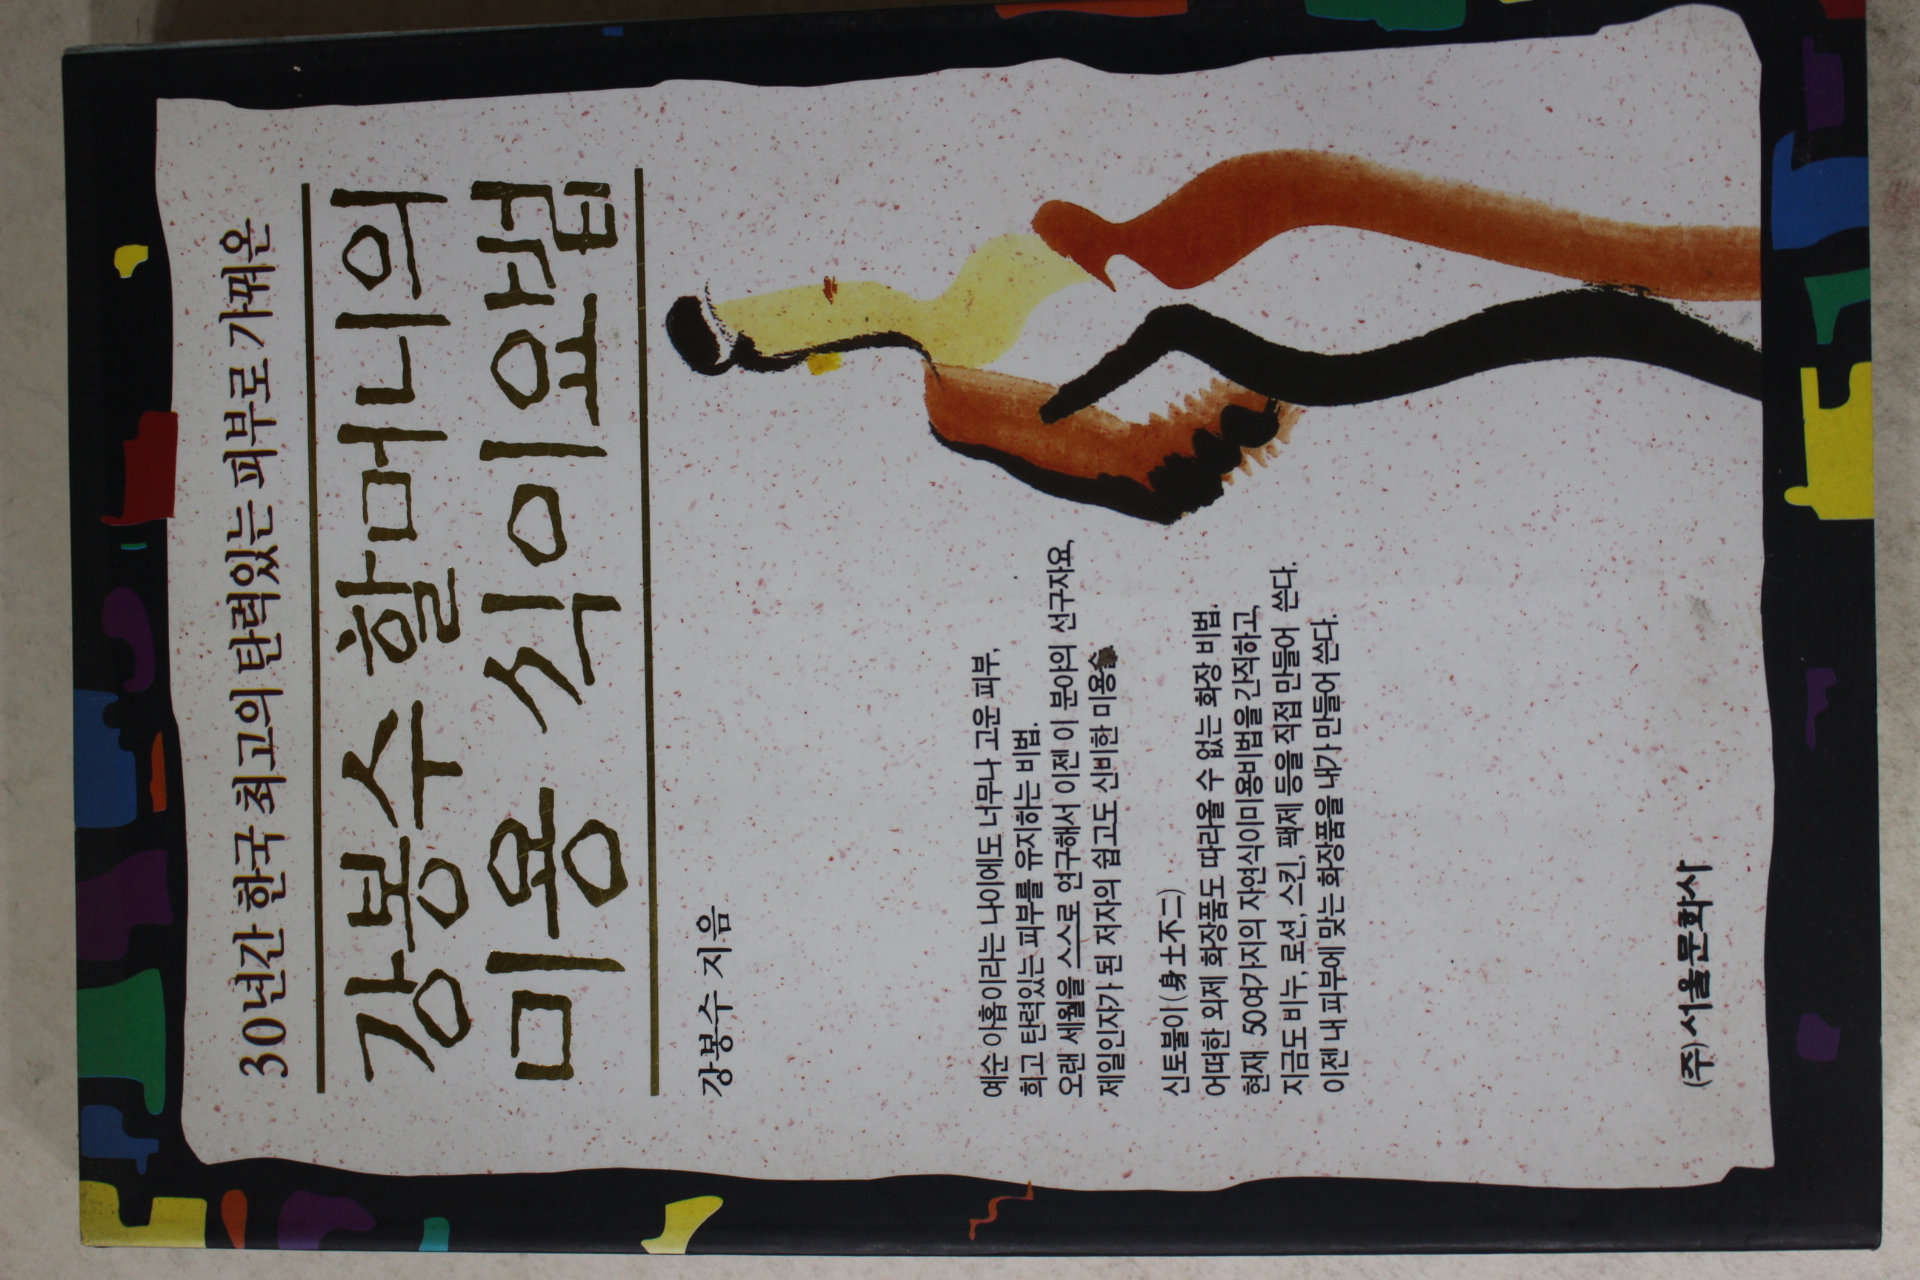 30년간 한국 최고의 탄력있는 피부로 가꿔온
강봉수 할머니의
미용 식이요법
강봉수 지음
예순 아홉이라는 나이에도 너무나 고운 피부,
희고 탄력있는 피부를 유지하는 비법.
오랜 세월을 스스로 연구해서 이젠 이 분야의 선구자요,
제일인자가 된 저자의 쉽고도 신비한 미용술
신토불이(身土不二)
어떠한 외제 화장품도 따라올 수 없는 화장 비법.
현재 50여가지의 자연식이미용비법을 간직하고,
지금도 비누, 로션, 스킨, 팩제 등을 직접 만들어 쓴다.
이젠 내 피부에 맞는 화장품을 내가 만들어 쓴다.
(주)서울문화사